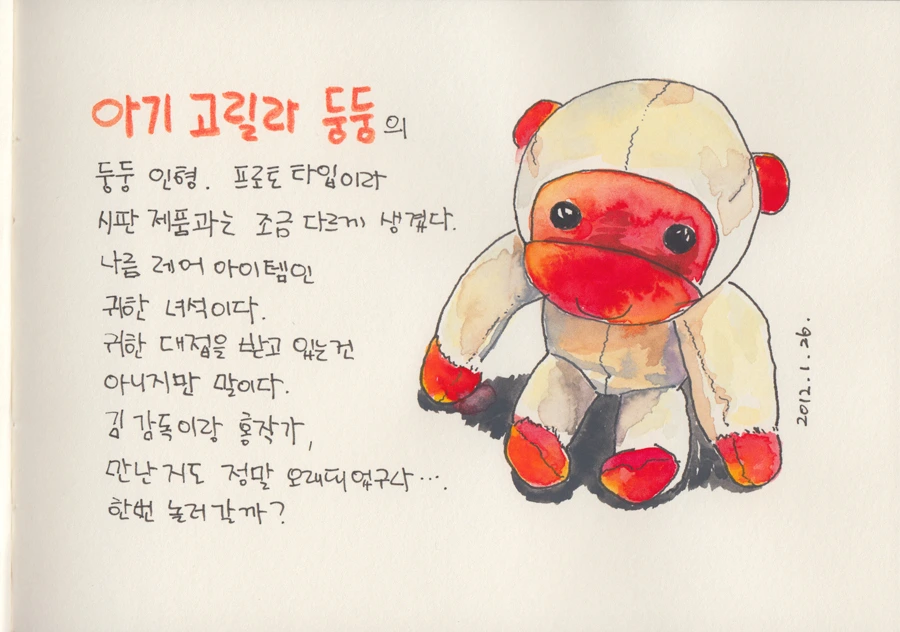 아기 고릴라 둥둥의
둥둥 인형. 프로토타입이라
시판 제품과는 조금 다르게 생겼다.
나름 레어 아이템인
귀한 녀석이다.
귀한 대접을 받고 있는건
아니지만 말이다.
김감독이랑 홍작가,
만난지도 정말 오래되었구나….
한번 놀러갈까?
2012.1.26.